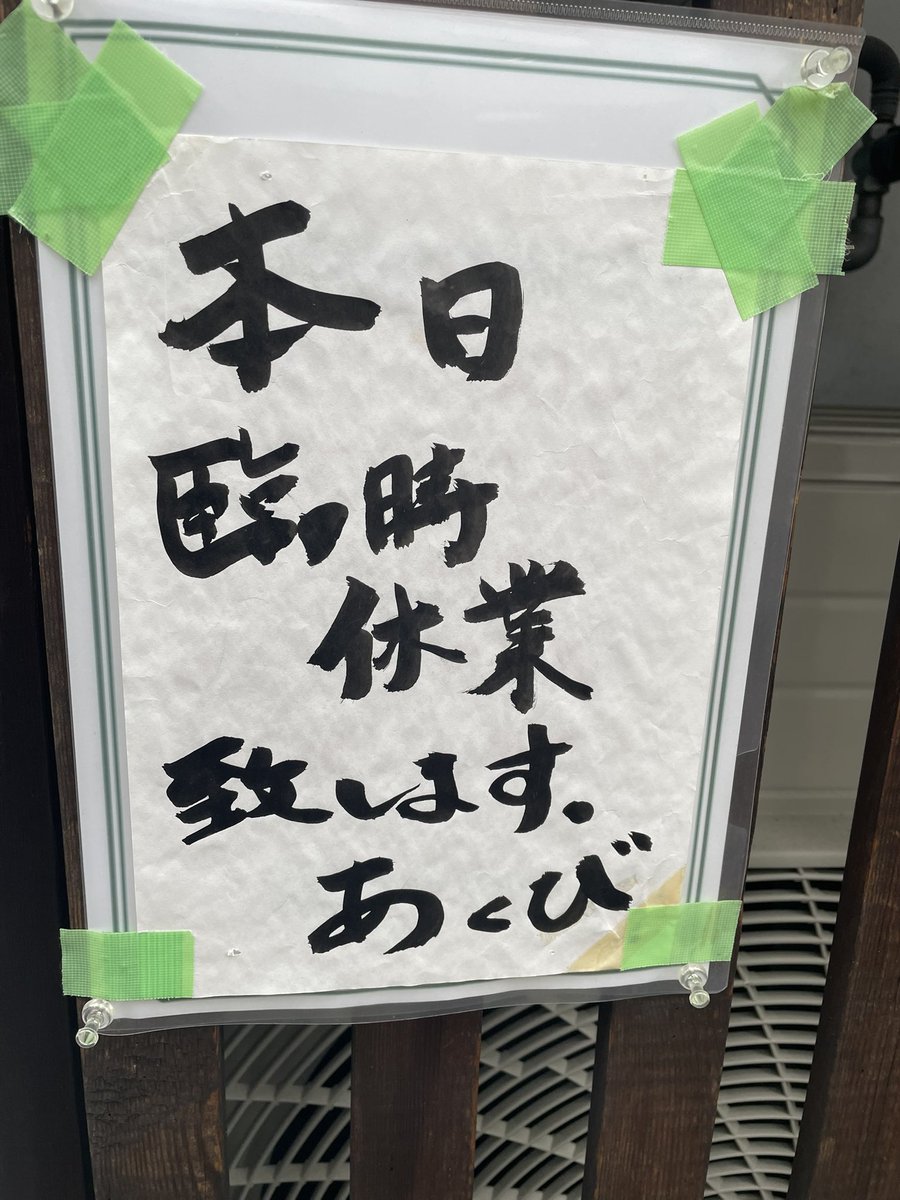 本日
臨時
休業
致します.
あくび